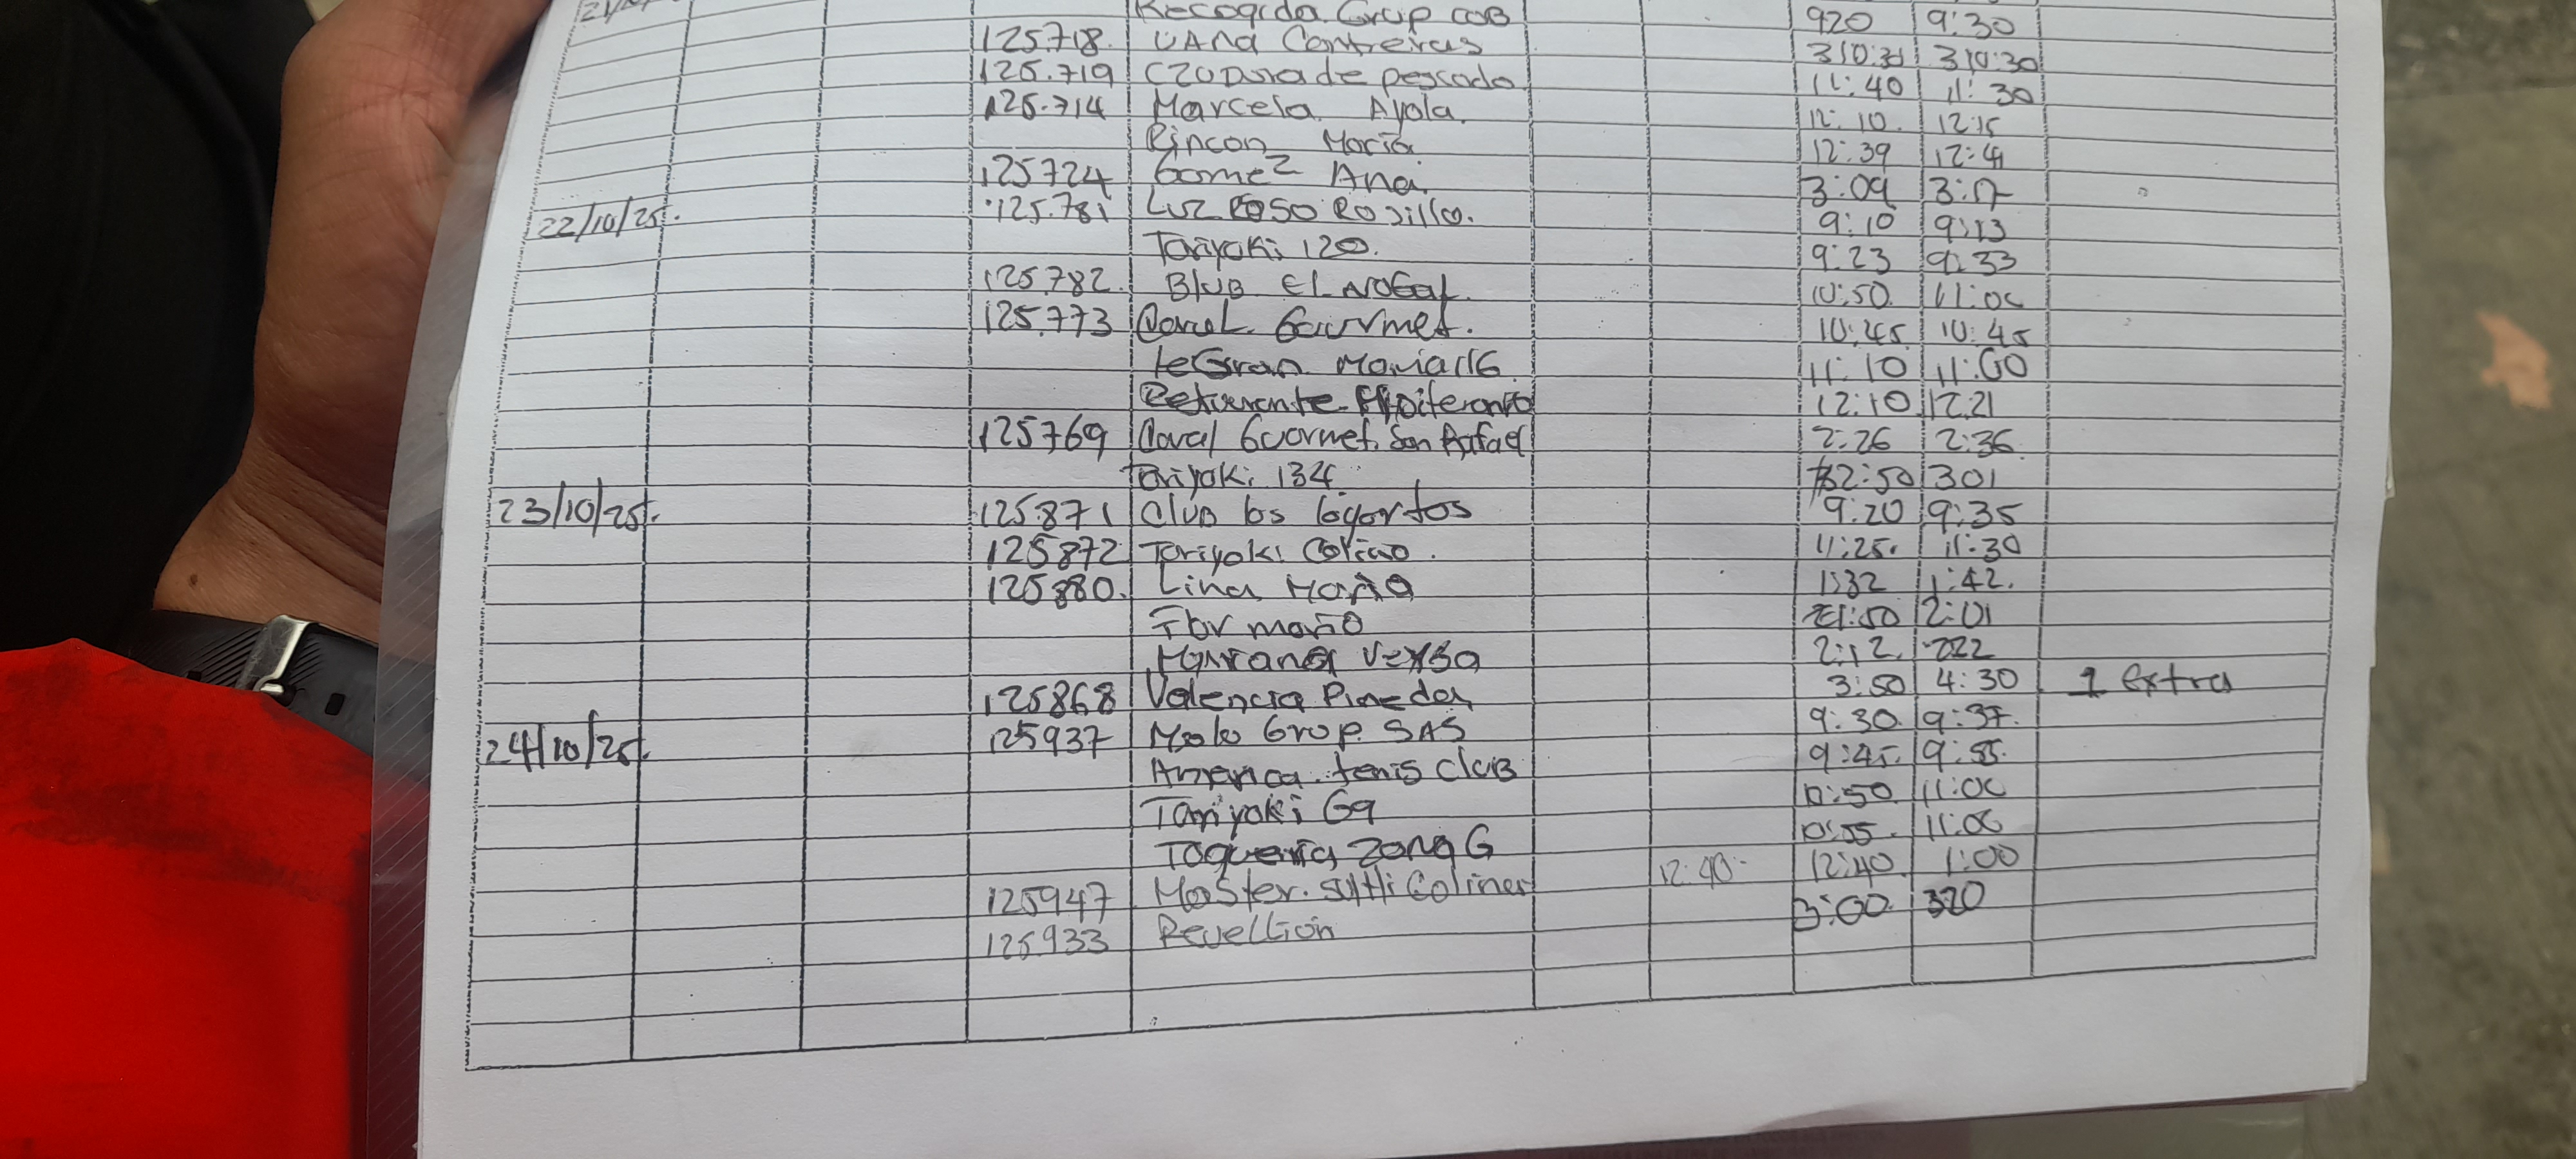 21/
Recogida Grup COB 920 9:30
125.718. Contreras 310:31 310:30
125.719 de pescado 11:40 11:30
125.714 Marcela Ayola. 12:10. 12:15
Rincon Maria 12:39 12:41
125724 Gomez Ana. 3:09 3:17
22/10/25. 125.781 Luz Rosillo. 9:10 9:13
Tariyaki 120. 9:23 9:33
125.782. El Nogal. 10:50. 11:00
125.773 Gourmet. 10:45 10:45
11:10 11:00
12:10 12.21
125769 Gourmet. San Rafael 2:26 2:36
Tariyaki 134 2:50 301
23/10/25. 125.871 Club los lagartos 9:20 9:35
125872 Tariyaki 11:25. 11:30
125880. Lina Maria 1:32 1:42.
1:50 2:01
2:12 222
125868 Valencia Pineda 3:50 4:30 1 Extra
24/10/25. 125937 Grup SAS 9:30. 9:37.
America tenis club 9:45. 9:55.
Tariyaki G9 10:50 11:00
Zona G 10:55. 11:00
125947 Master 12:40 12:40. 1:00
125.933 Revellion 3:00 320